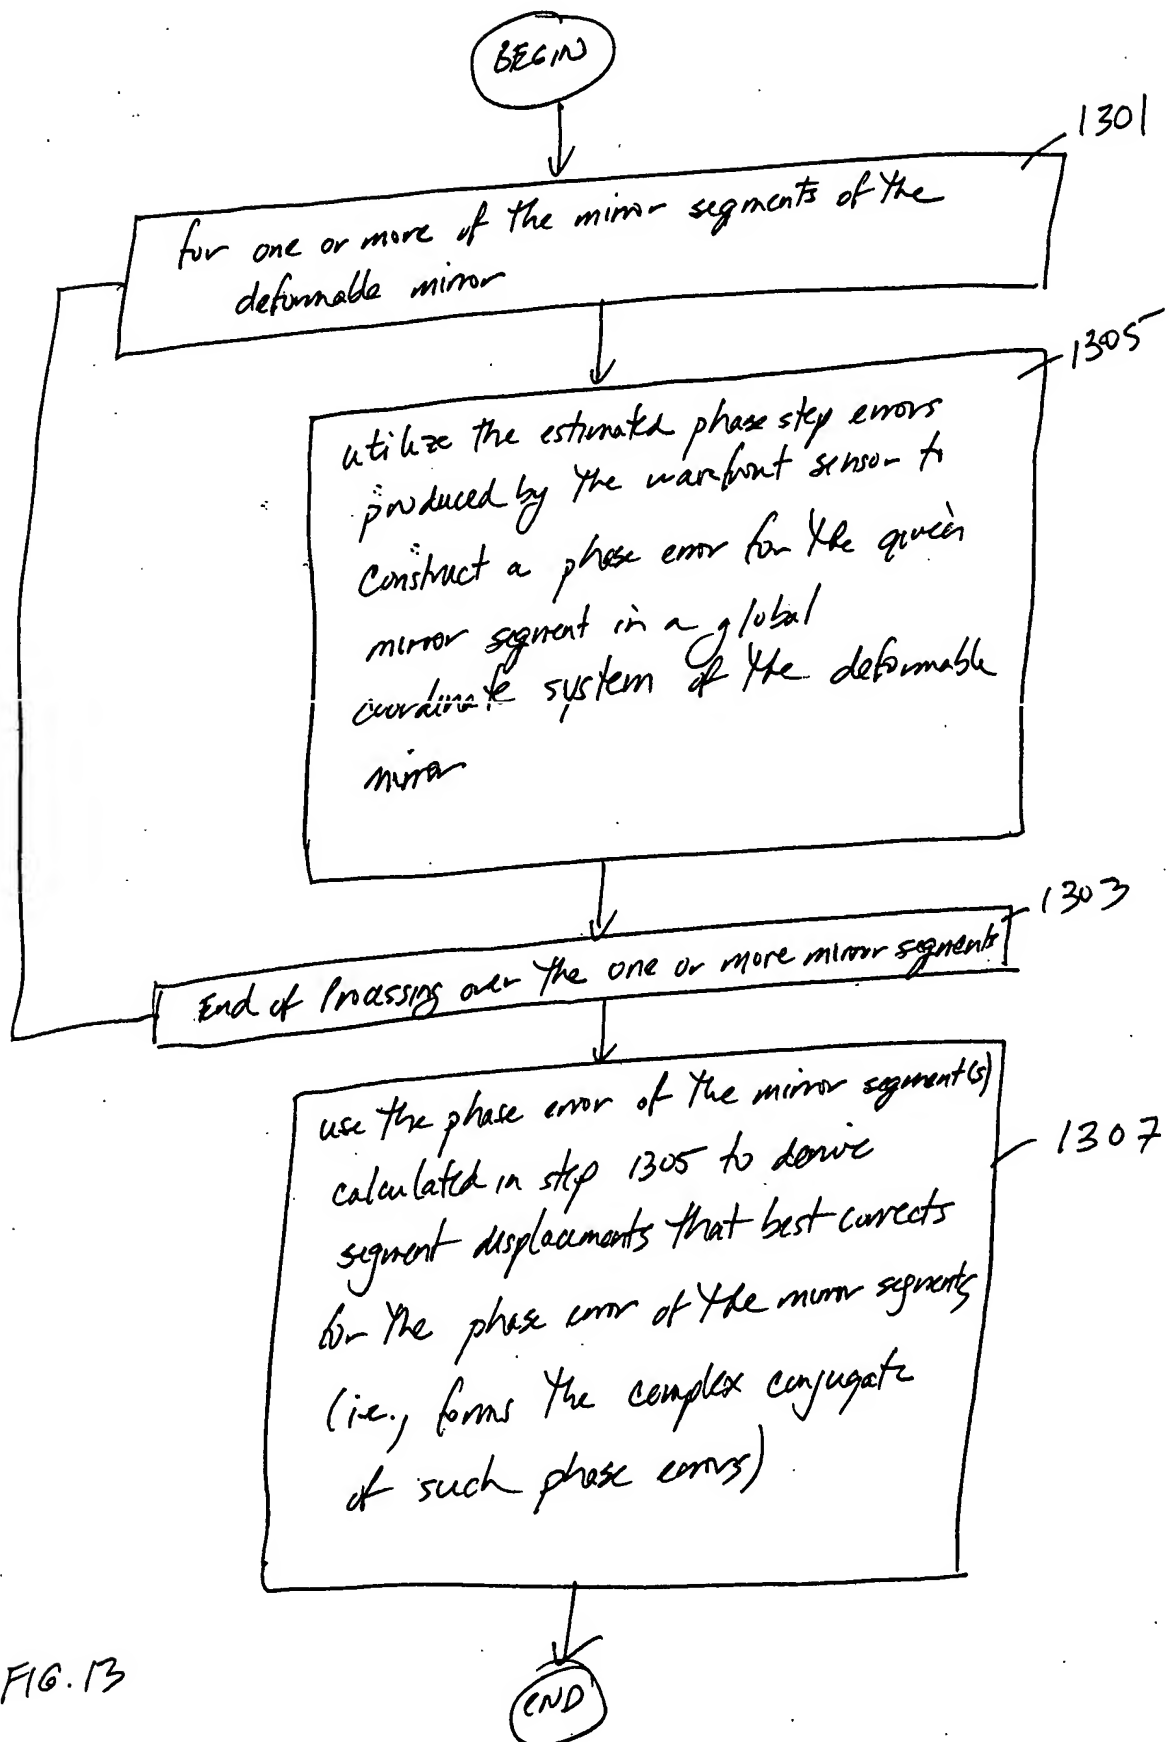 BEGIN
1301
for one or more of the mirror segments of the
deformable mirror
1305
utilize the estimated phase step errors
produced by the wavefront sensor to
construct a phase error for the given
mirror segment in a global
coordinate system of the deformable
mirror
1303
End of Processing over the one or more mirror segments
use the phase error of the mirror segment(s)
1307
calculated in step 1305 to derive
segment displacements that best corrects
for the phase error of the mirror segments
(i.e., forms the complex conjugate
of such phase errors)
FIG. 13
END